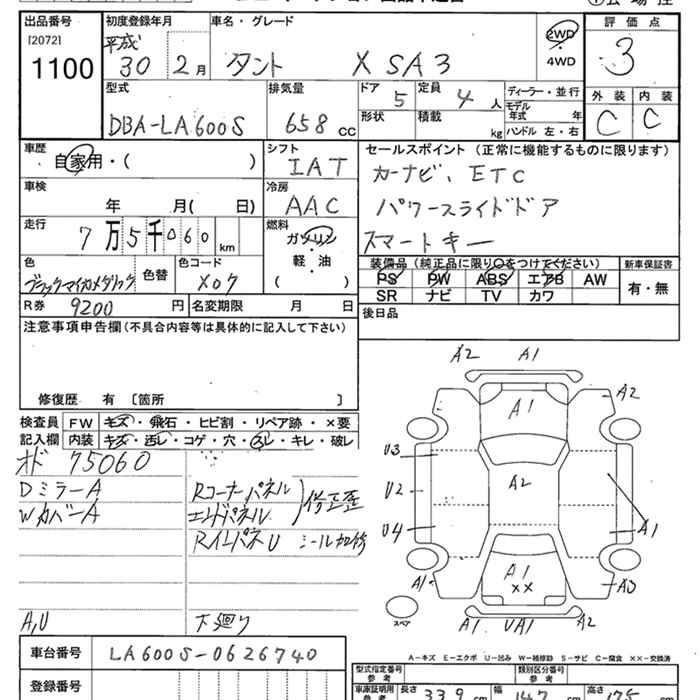 出品番号
[2072]
1100
初度登録年月
平成
30 2月
車名・グレード
タント X SA3
2WD
・
4WD
評価点
3
外装 内装
C C
型式
DBA-LA600S
排気量
658 CC
ドア 5
定員 4 人
形状
積載 kg
ディーラー・並行
モデル年式 年
ハンドル 左・右
車歴
自家用・( )
シフト
IAT
セールスポイント (正常に機能するものに限ります)
カーナビ、ETC
パワースライドドア
スマートキー
車検
年 月( 日)
冷房
AAC
走行
7万5千060 km
燃料
ガソリン
・
軽・油
( )
色
ブラックマイカメタリック
色替
色コード
X07
装備品(純正品に限り○をつけてください)
PS PW ABS エアB AW
SR ナビ TV カワ
新車保証書
有・無
R券 9200 円
名変期限 月 日
後日品
注意事項申告欄(不具合内容等は具体的に記入して下さい)
修復歴 有 〔箇所 〕
検査員
記入欄
FW キズ・飛石・ヒビ割・リペア跡・×要
内装 キズ・汚レ・コゲ・穴・スレ・キレ・破レ
オド 75060
Dミラー A
Wカバー A
Rコーナーパネル
エンドパネル
修正歪
Rインパネ U シール加修
A,U 下廻り
A2 A1
A1
A2
U3
A2
U2
U4
A1
A1
A1
××
A3
スペア
A1 UA1 A2
A−キズ E−エクボ U−凹み W−補修跡 S−サビ C−腐食 ××−交換済
車台番号 LA600S-0626740
登録番号
型式指定番号
参考
類別区分番号
参考
車庫証明用
参考
長さ 339 cm
幅 147 cm
高さ 175 cm